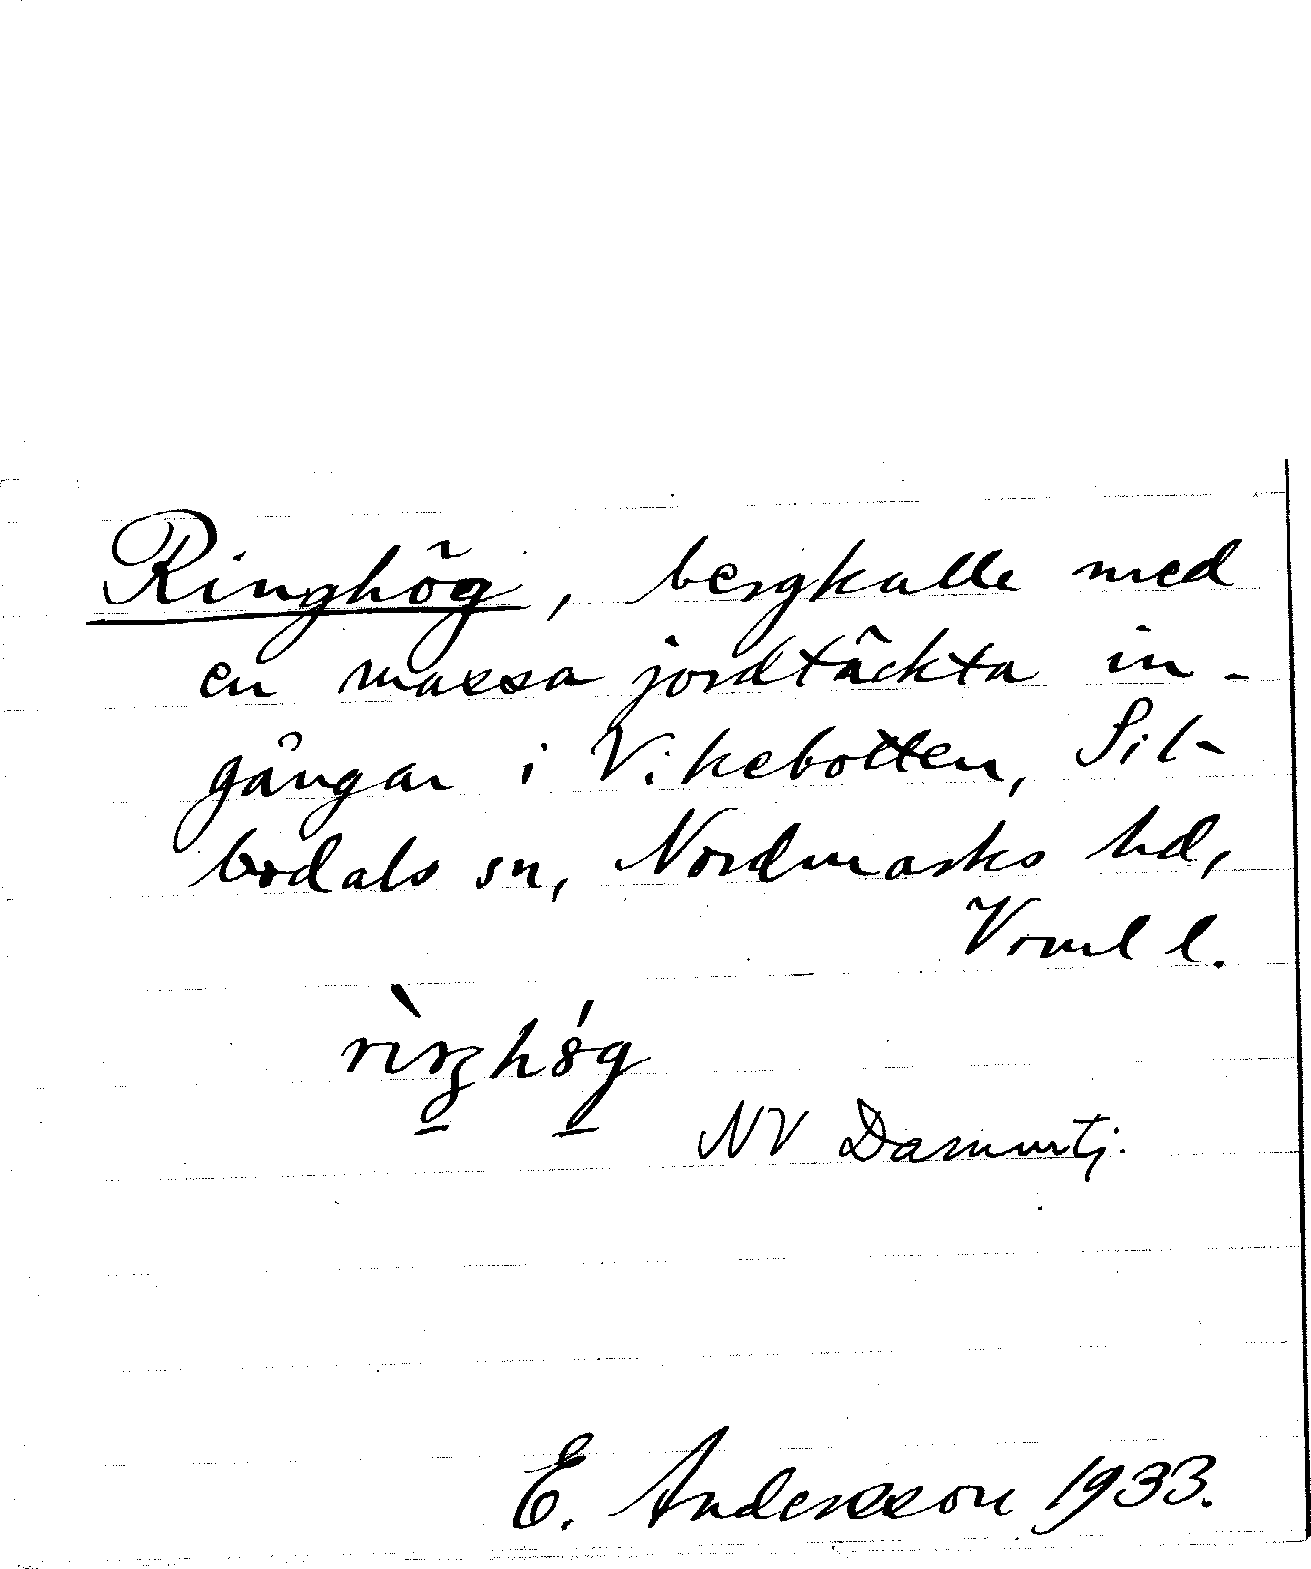 Ringhög, bergkulle med
en massa jordtäckta in-
gångar i Vikebotten, Sil-
bodals sn, Nordmarks hd,
Vrml l.
NV Dammtj.
E. Andersson 1933.